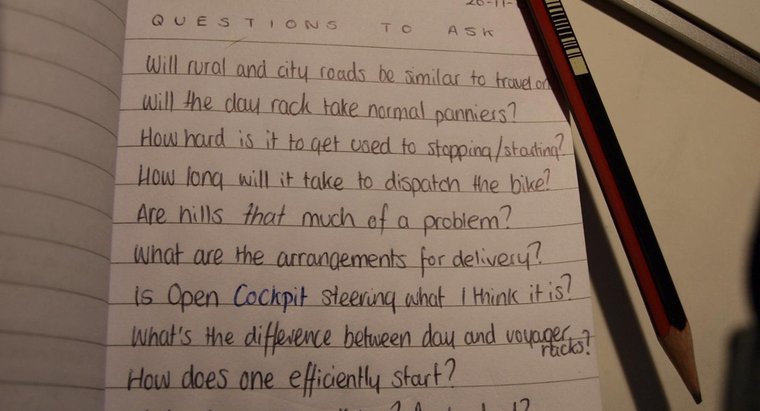 20-11-
QUESTIONS TO ASK
Will rural and city roads be similar to travel on
Will the day rack take normal panniers?
How hard is it to get used to stopping/starting?
How long will it take to dispatch the bike?
Are hills that much of a problem?
What are the arrangements for delivery?
Is Open Cockpit steering what I think it is?
What's the difference between day and voyager
racks?
How does one efficiently start?